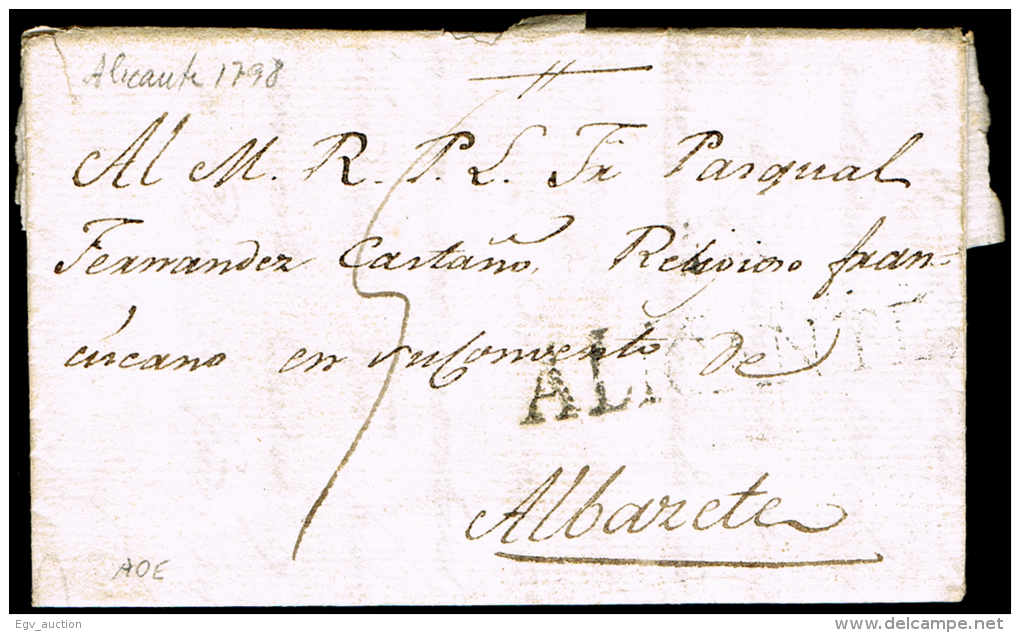 Alicante 1798
Al M. R. P. L. Fr Pasqual
Fernandez Castaño, Religioso fran-
ciscano en su Convento de
ALICANTE
Albazete
AOE
Egv_auction
delcampe.net